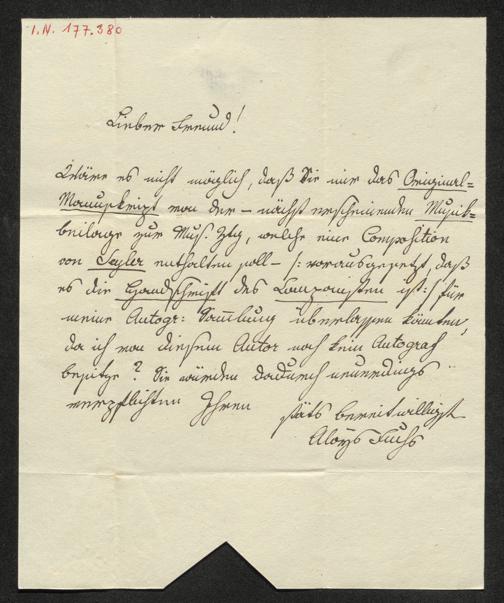 I.N. 177.380
Lieber Freund!
Wäre es nicht möglich, daß Sie mir das Original-
Manuskript von der – nächst erscheinenden Musik-
beilage zur Mus. Ztg, welche eine Composition
von Seyler enthalten soll – /: vorausgesetzt, daß
es die Handschrift des Componisten ist :/ für
meine Autogr: Sam̅lung überlassen könnten,
da ich von diesem Autor noch kein Autograf
besitze? Sie würden dadurch neuerdings
verpflichten Ihren
stäts bereitwilligst
Aloys Fuchs